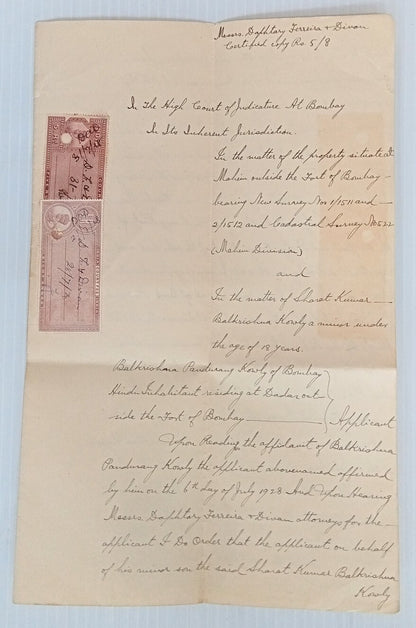 Messrs. Daphtary Ferreira & Divan
Certified copy Rs. 5/8
In The High Court of Judicature At Bombay
In Its Inherent Jurisdiction.
In the matter of the property situate at
Mahim outside the Fort of Bombay –
bearing New Survey Nos 1/1511 and –
2/1512 and Cadastral Survey No 522
(Mahim Division)
and
In the matter of Sharat Kumar –
Balkrishna Kowly a minor under
the age of 18 years.
Balkrishna Pandurang Kowly of Bombay
Hindu Inhabitant residing at Dadar out-
side the Fort of Bombay –
Applicant
Upon Reading the affidavit of Balkrishna
Pandurang Kowly the applicant abovenamed affirmed
by him on the 6th day of July 1928 And Upon Hearing
Messrs. Daphtary Ferreira & Divan attorneys for the –
applicant I Do Order that the applicant on behalf
of his minor son the said Sharat Kumar Balkrishna
Kowly